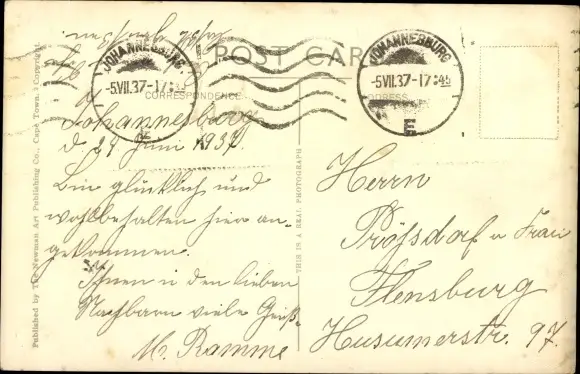 POST CARD
CORRESPONDENCE
ADDRESS
JOHANNESBURG
-5VII.37-17:45
E
JOHANNESBURG
-5VII.37-17:45
E
Johannesburg
d. 24 Juni 1937.
Bin glücklich und
wohlbehalten hier an-
gekommen.
Ihnen u den lieben
Nachbarn viele Grüß-
M. Ramme
Herrn
Prößdorf u Frau
Flensburg
Husumerstr. 97.
THIS IS A REAL PHOTOGRAPH
Published by The Newman Art Publishing Co., Cape Town. Copyright